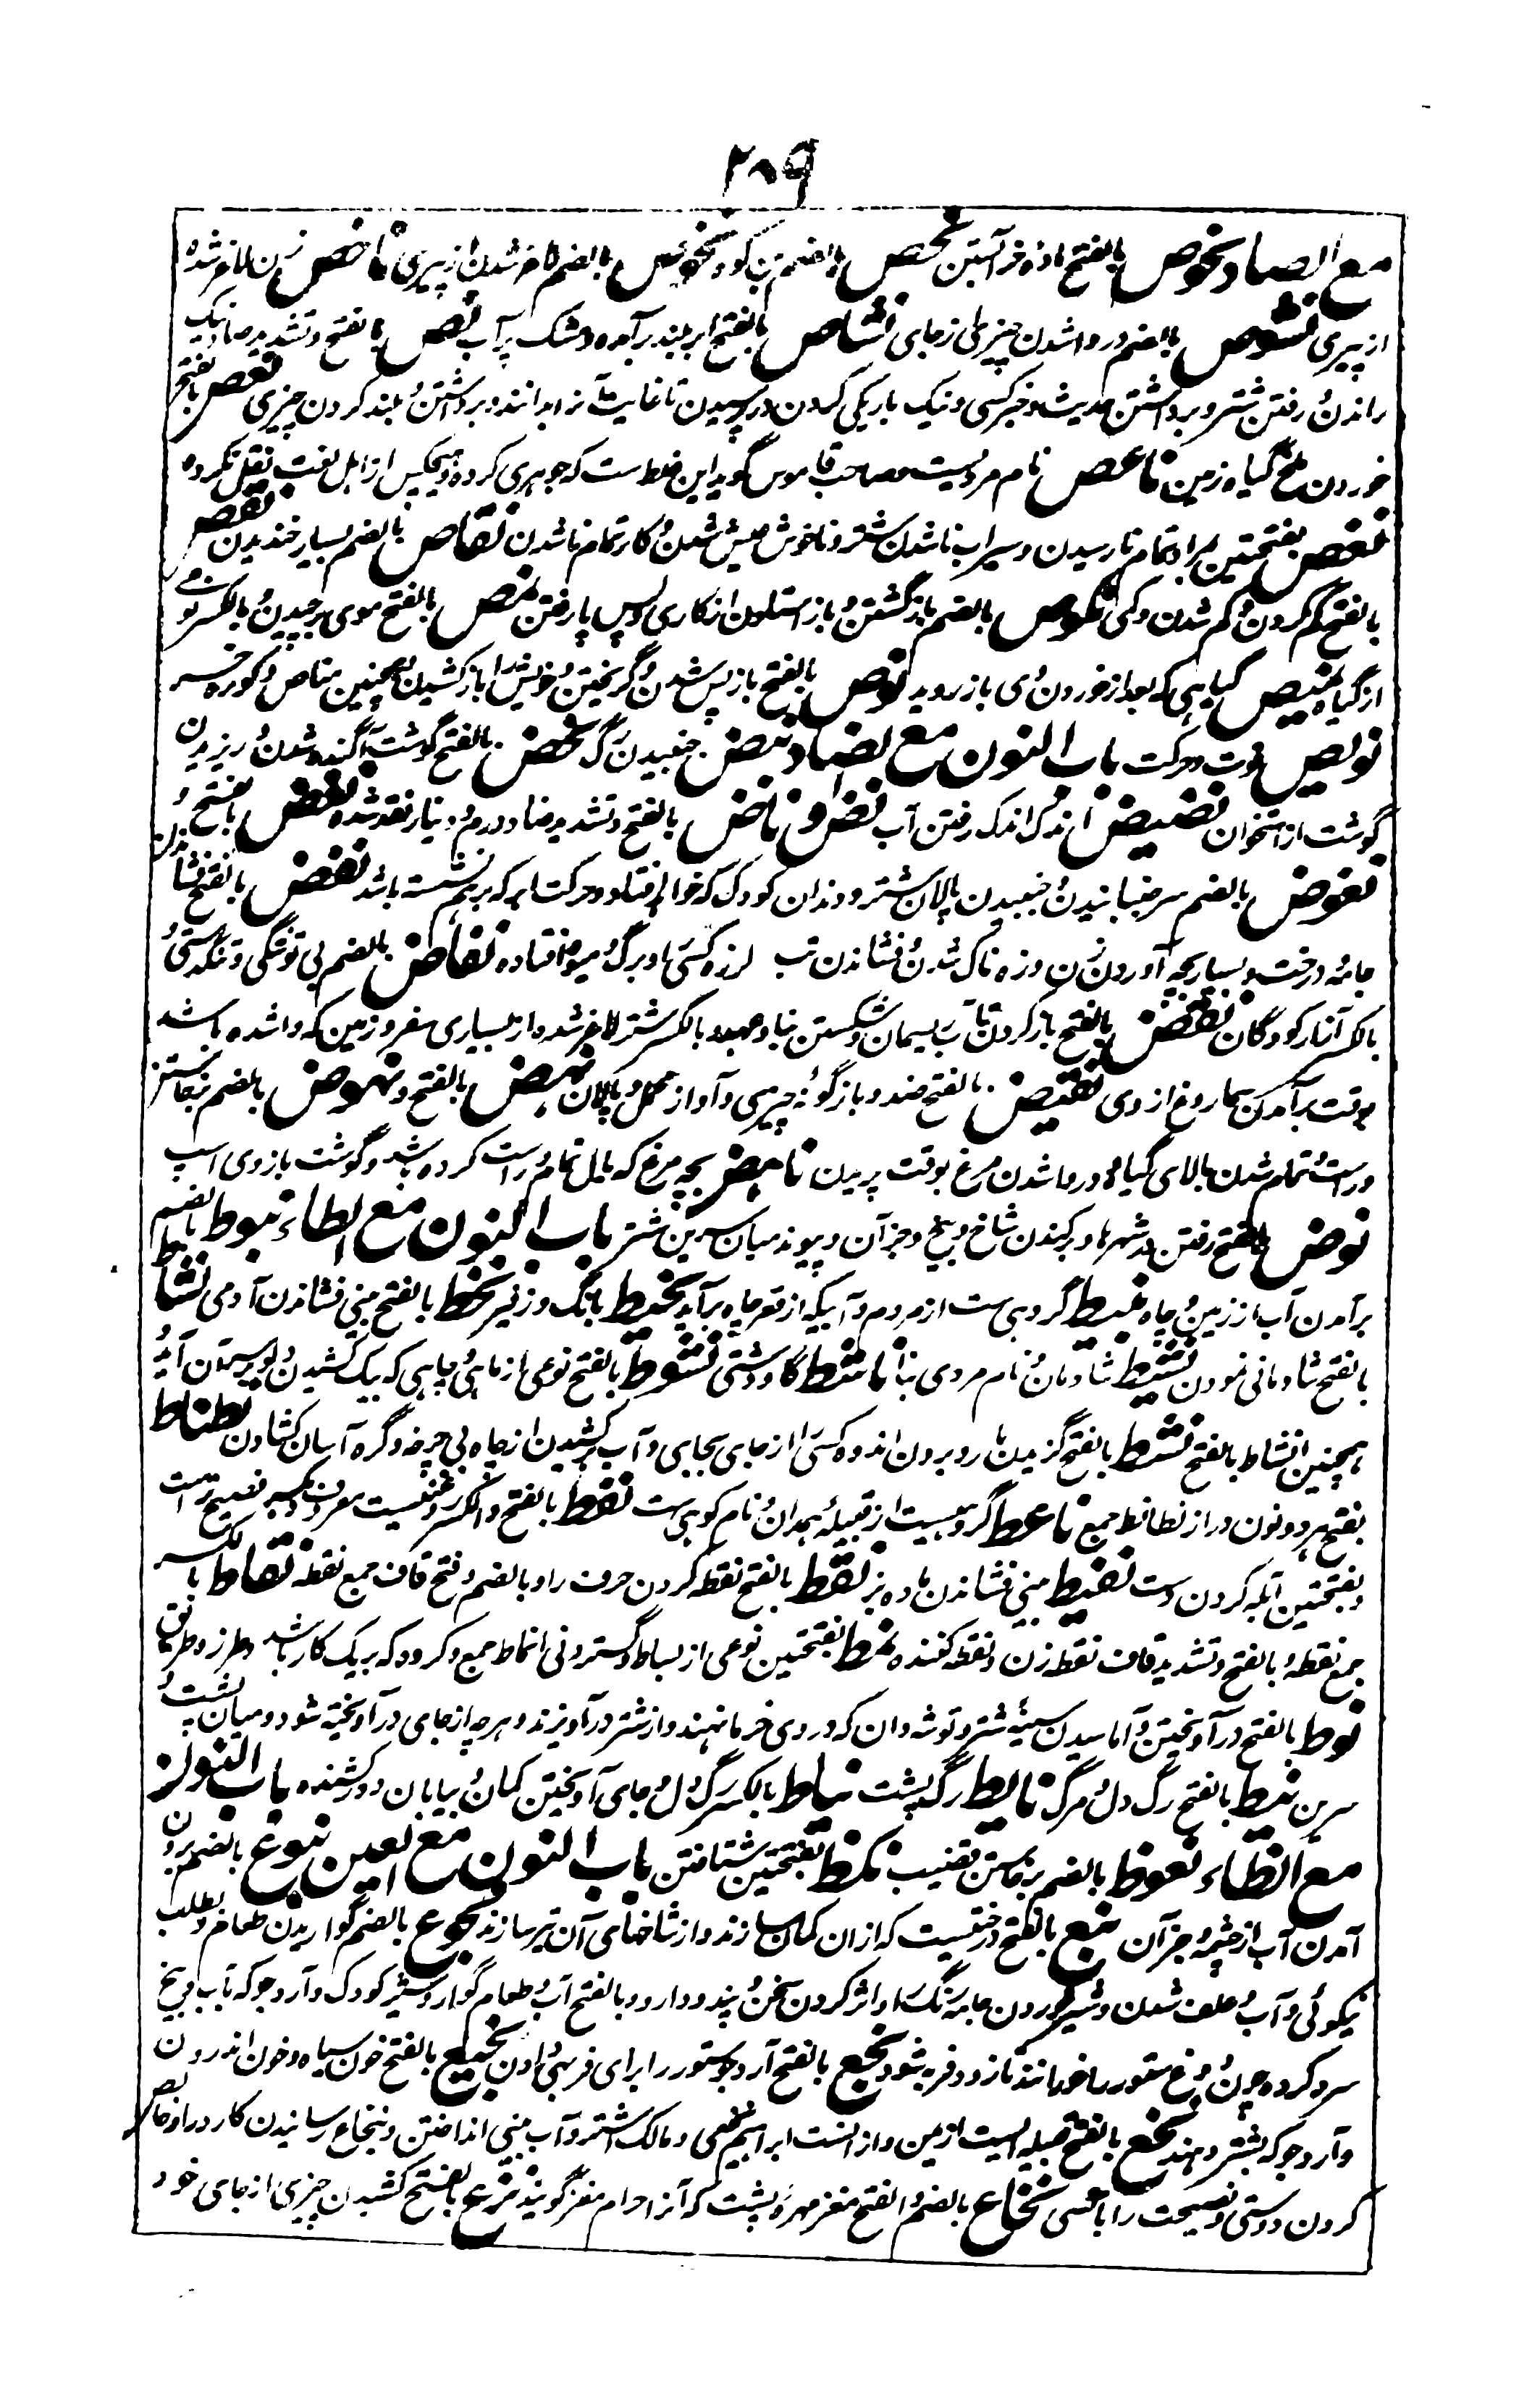 ۲۸۹
مع الصاد نخوص بالفتح ماده خر آبستن نحص بالضم بن کوه نخوص بالضم لاغر شدن از پیری ناخص زن لاغر شده
از پیری نشوص بالضم دروا شدن چیزی از جای نشاص بالفتح ابر بلند برآمده و مشک پر آب نص بالفتح و تشدید صاد نیک
راندن و رفتن شتر و برداشتن حدیث و خبر کسی و نیک باریکی کردن در پرسیدن تا غایت آنرا بدانند و برداشتن و بلند کردن چیزی نعص بالفتح
خوردن ملخ گیاه زمین ناعص نام مردیست و صاحب قاموس گوید این غلط ست که جوهری کرده و هیچکس از اهل لغت نقل نکرده
نغص بفتحتین بمراد تمام نارسیدن و سیراب ناشدن شتر و ناخوش عیش شدن و کار تمام ناشدن نفاص بالضم بسیار خندیدن نقص
بالفتح کم کردن و کم شدن و کمی نکوص بالضم بازگشتن و باز استادن از کاری و پس پا رفتن نمص بالفتح موی برچیدن و بالکسر نوعی
از گیاه نمیص گیاهی که بعد از خوردن وی باز روید نوص بالفتح باز پس شدن و گریختن و خویشتن را باز کشیدن همچنین مناص و گوره خر
نویص قوت و حرکت باب النون مع الضاد نبض جنبیدن رگ نحض بالفتح گوشت آگنده شدن و ریزیدن
گوشت از استخوان نضیض اندک اندک رفتن آب نض و ناض بالفتح و تشدید ضاد و درم و دینار نقد شده نغض بالفتح و
نغوض بالضم سر جنبانیدن و جنبیدن پالان شتر و دندان کودک که خواهد افتاد و حرکت ابر که بر هم نشسته باشد نفض بالفتح فشاندن
جامه و درخت و بسیار بچه آوردن زن و زه ناک شدن و فشاندن تب لرزه کسی را و برگ و میوه افتاده نفاض بالضم بی توشگی و تنگدستی و
بالکسر آزار کودکان نقض بالفتح باز کردن تاب ریسمان و شکستن بنا و عهد و بالکسر شتر لاغر شده از بسیاری سفر و زمین که واشده باشد
بوقت برآمدن سماروغ از وی نقیض بالفتح ضد و بازگونه چیزی و آواز محمل و پالان نهض بالفتح و نهوض بالضم برخاستن
و راست و تمام شدن بالای گیاه و دروا شدن مرغ بوقت پریدن ناهض بچه مرغ که بال تمام و راست کرده باشد و گوشت بازوی اسپ
نوض بالفتح رفتن در شهرها و برکندن شاخ و میخ و جز آن و پیوند میان سرین شتر باب النون مع الطاء نبوط بالضم
برآمدن آب از زمین و چاه نبیط گروهی ست از مردم و آبیکه از قعر چاه برآید نحیط بانگ و زفیر نخط بالفتح بینی فشاندن آدمی نشاط
بالفتح شادمانی نمودن نشیط شادمان و نام مردی بنا ناشط گاو دشتی نشوط بالفتح نوعی از ماهی و چاهی که بیک کشیدن دلو بدستان آید و
همچنین انشاط بالفتح نشط بالفتح گزیدن مار و بردن اندوه کسی را از جای بجایی و آب برکشیدن از چاه بی چرخه و گره آسان کشادن نطناط
بفتح هر دو نون دراز نطانط جمع ناعط گروهیست از قبیله همدان و نام کوهی ست نفط بالفتح و الکسر روغنیست معروف و کسر فصیح ترست
و بفتحتین آبله کردن دست نفیط بینی فشاندن ماده بز نقط بالفتح نقطه کردن حرف را و بالضم و فتح قاف جمع نقطه نقاط بالکسر
جمع نقطه و بالفتح و تشدید قاف نقطه زن و نقطه کننده نمط بفتحتین نوعی از بساط و گستردنی انماط جمع و گروه که بر یک کار باشد و طرز و طریق
نوط بالفتح در آویختن و آماسیدن سینه شتر و توشه دان که در وی خرما نهند و از شتر درآویزند و هرچه از جای درآویخته شود و میان پشت و
سرین نیط بالفتح رگ دل و مرگ نایط رگ پشت نیاط بالکسر رگ دل و جای آویختن کمان و بیابان دور کشنده باب النون
مع الظاء نعوظ بالضم برخاستن قضیب نکظ بفتحتین شتافتن باب النون مع العین نبوع بالضم برون
آمدن آب از چشمه و جز آن نبع بالفتح درختیست که از ان کمان سازند و از شاخهای آن تیر سازند نجوع بالضم گواریدن طعام و بطلب
نیکوئی و آب و علف شدن و شیر خوردن جامه رنگ را و اثر کردن سخن و پند و دارو و بالفتح آب و طعام گوارا و شیر کودک و آرد جو که بآب و یخ
سرد کرده چون مرغ و ستور را خورانند تازه و فربه شود نجع بالفتح آرد جو ستور را برای فربهی دادن نجیع بالفتح خون سیاه و خون اندرون
و آرد جو که بشتر دهند نخع بالفتح قبیله ایست از یمن و از انست ابراهیم نخعی و مالک اشتر و آب بینی انداختن و بنخاع رسانیدن کارد را و خالص
کردن دوستی و نصیحت را با کسی نخاع بالضم و الفتح مغز مهره پشت که آنرا حرام مغز گویند نزع بالفتح کشیدن چیزی از جای خود